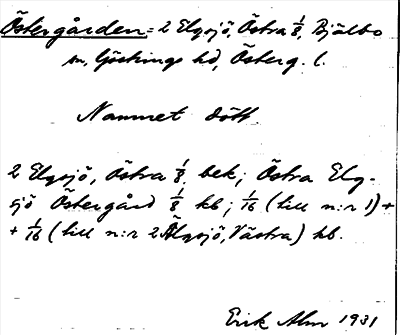 Östergården = 2 Elgsjö, Östra 1/8, Bjälbo
sn, Göstrings hd, Österg. l.
Namnet dött.
2 Elgsjö, Östra 1/8 bek; Östra Elg-
sjö Östergård 1/8 kb; 1/16 (till n:r 1) +
+ 1/16 (till n:r 2 Älgsjö, Västra) kb.
Erik Alm 1931